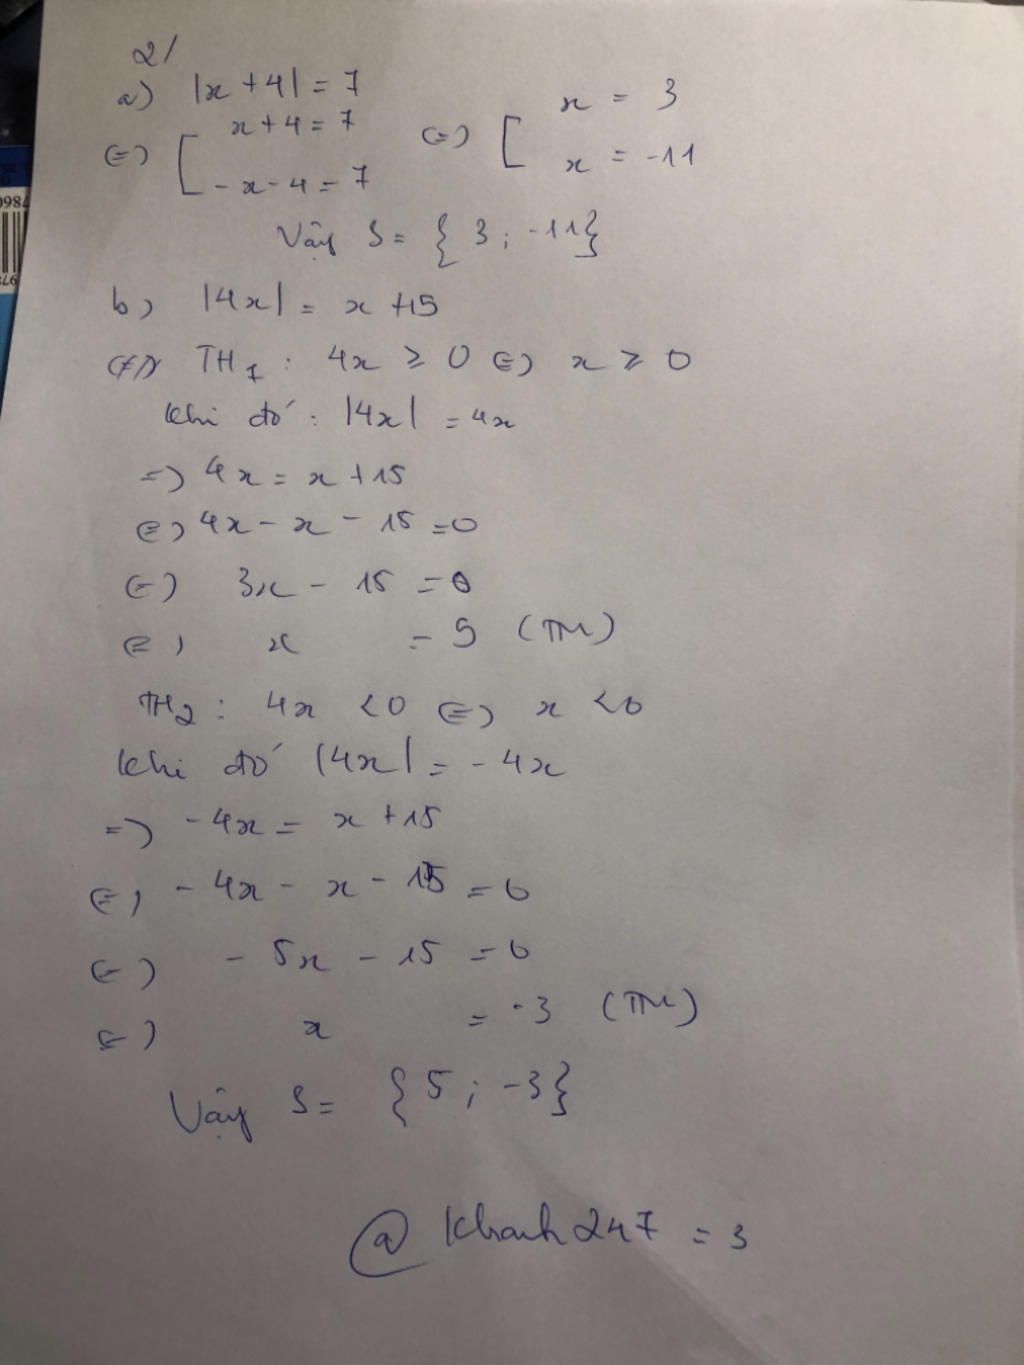 2/
a) |x + 4| = 7
(=) [ x + 4 = 7 (=) [ x = 3
- x - 4 = 7 x = -11
Vậy S = { 3 ; -11}
b) |4x| = x + 15
TH1 : 4x ≥ 0 (=) x ≥ 0
Khi đó : |4x| = 4x
=) 4x = x + 15
(=) 4x - x - 15 = 0
(=) 3x - 15 = 0
(=) x = 5 (TM)
TH2 : 4x < 0 (=) x < 0
Khi đó |4x| = - 4x
=) - 4x = x + 15
(=) - 4x - x - 15 = 0
(=) - 5x - 15 = 0
(=) x = -3 (TM)
Vậy S = { 5 ; -3}
@ Khanh247 = 3